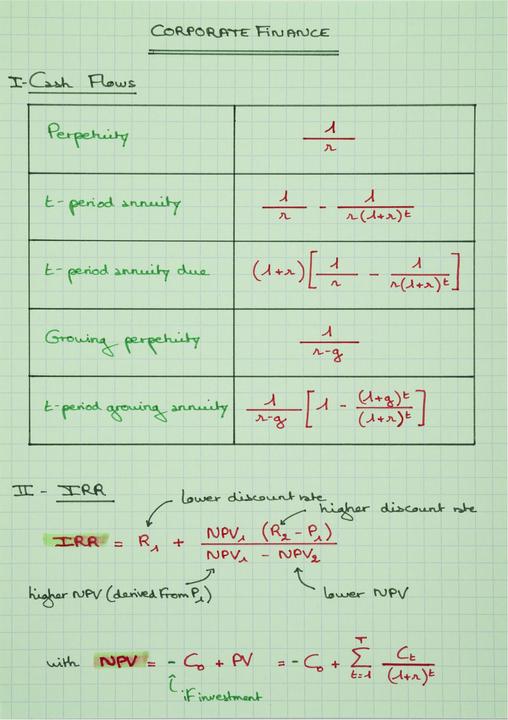 CORPORATE FINANCE
I- Cash Flows
Perpetuity 1/r
t-period annuity 1/r - 1/r(1+r)^t
t-period annuity due (1+r)[1/r - 1/r(1+r)^t]
Growing perpetuity 1/r-g
t-period growing annuity 1/r-g [1 - (1+g)^t/(1+r)^t]
II - IRR
lower discount rate
higher discount rate
IRR = R₁ + NPV₁ (R₂ - P₁)/NPV₁ - NPV₂
higher NPV (derived from P₁)
lower NPV
with NPV = - C₀ + PV = - C₀ + Σ_{t=1}^{T} C_t/(1+r)^t
if investment